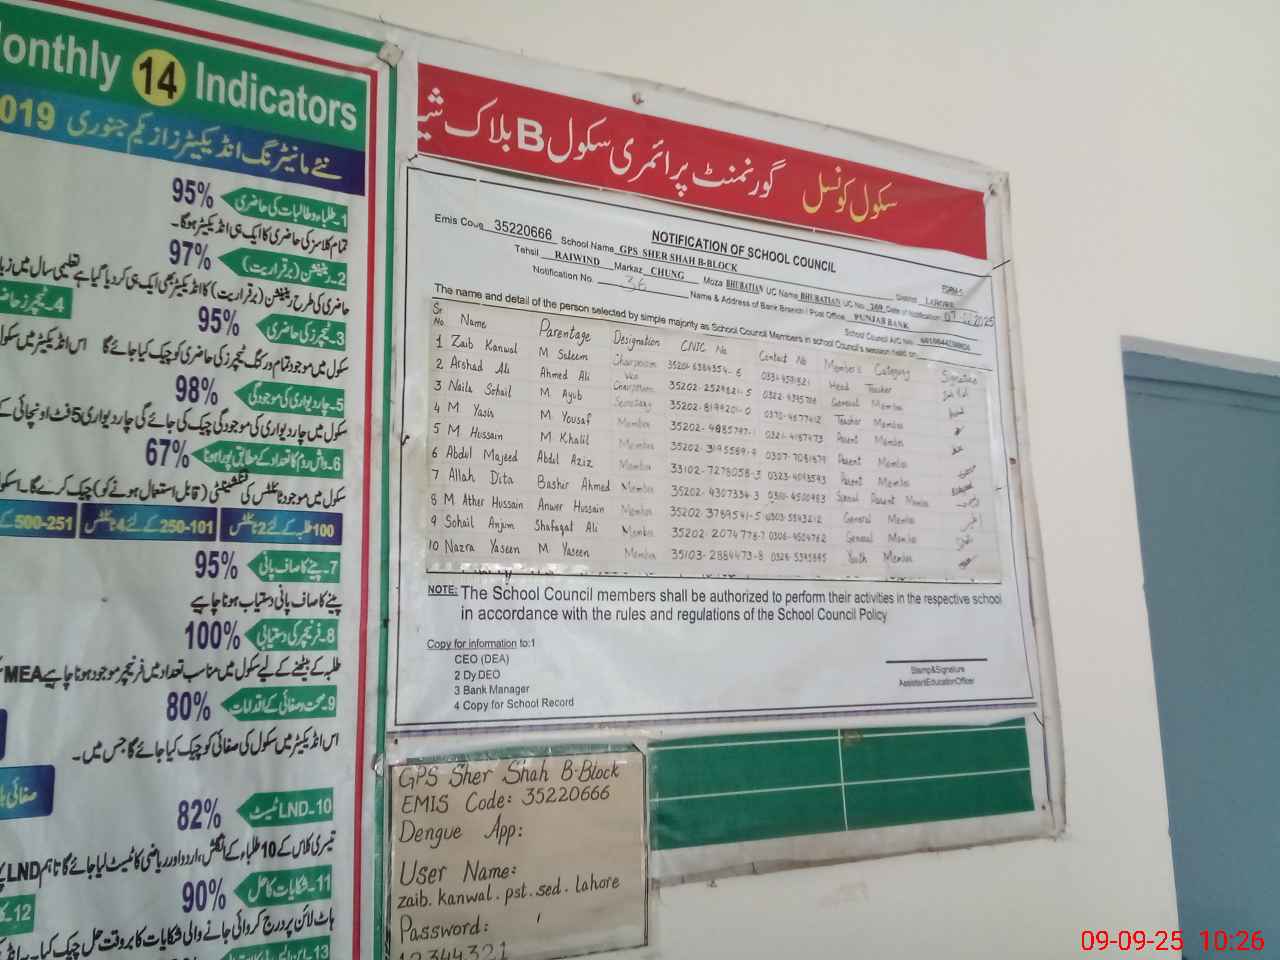 Monthly 14 Indicators
نئے مانیٹرنگ انڈیکیٹرز از یکم جنوری 2019
95% 1۔طلباء و طالبات کی حاضری
تمام کلاسز کی حاضری کا ایک ہی انڈیکیٹر ہوگا۔
97% 2۔ریٹینشن (برقراریت)
حاضری کی طرح ریٹینشن (برقراریت) کا انڈیکیٹر بھی ایک ہی کر دیا گیا ہے تعلیمی سال میں
4۔ٹیچرز
95% 3۔ٹیچرز کی حاضری
سکول میں موجود تمام ورکنگ ٹیچرز کی حاضری کو چیک کیا جائے گا اس انڈیکیٹر میں
98% 5۔چار دیواری کی موجودگی
سکول میں چار دیواری کی موجودگی چیک کی جائے گی چار دیواری 5 فٹ اونچائی
67% 6۔واش روم کا تعداد کے مطابق پورا ہونا
سکول میں موجود ٹوائلٹس کی فنکشنیلٹی (قابل استعمال ہونے کو) چیک کرے گا۔
100 طلبہ کے لئے 2 ٹوائلٹس
101-250 کے لئے 4 ٹوائلٹس
251-500
95% 7۔پینے کا صاف پانی
پینے کا صاف پانی دستیاب ہونا چاہیے
100% 8۔فرنیچر کی دستیابی
طلبہ کے بیٹھنے کے لیے سکول میں مناسب تعداد میں فرنیچر موجود ہونا چاہیے MEA
80% 9۔صحت و صفائی کے اقدامات
اس انڈیکیٹر میں سکول کی صفائی کو چیک کیا جائے گا جس میں۔
صفائی
82% 10۔LND ٹیسٹ
تیسری کلاس کے 10 طلباء کے انگلش، اردو اور ریاضی کا ٹیسٹ لیا جائے گا تاہم LND
90% 11۔شکایات کا حل
12۔
ہاٹ لائن پر درج کروائی جانے والی شکایات کا بروقت حل چیک کیا
13۔
سکول کونسل گورنمنٹ پرائمری سکول B بلاک
NOTIFICATION OF SCHOOL COUNCIL
FORM-5
Emis Code 35220666 School Name GPS SHER SHAH B-BLOCK District LAHORE
Tehsil RAIWIND Markaz CHUNG Moza BHUBATIAN UC Name BHUBATIAN UC No. 269 Date of Notification 2025
Notification No. 36 Name & Address of Bank Branch / Post Office PUNJAB BANK School Council A/C No.
The name and detail of the person selected by simple majority as School Council Members in school Council's session held on
Sr No. Name Parentage Designation CNIC No Contact No Member's Category Signature
1 Zaib Kanwal M Saleem Chairperson 35201-6364354-6 Head Teacher
2 Arshad Ali Ahmed Ali Vice Chairperson 35202-2529821-5 General Member
3 Naila Sohail M Ayub Secretary 35202-8199201-0 0370-4677412 Teacher Member
4 M Yasin M Yousaf Member 35202-4885797-1 0321-4187473 Parent Member
5 M Hussain M Khalil Member 35202-3195589-9 0307-7081879 Parent Member
6 Abdul Majeed Abdul Aziz Member 33102-7278058-3 0323-4043593 Parent Member
7 Allah Dita Bashir Ahmed Member 35202-4307334-3 0300-4500983 Special Parent Member
8 M Ather Hussain Anwer Hussain Member 35202-3789541-5 0303-5543212 General Member
9 Sohail Anjum Shafaqat Ali Member 35202-2074778-7 0306-4504762 General Member
10 Nazra Yaseen M Yaseen Member 35103-2884473-8 0326-5345885 Youth Member
NOTE: The School Council members shall be authorized to perform their activities in the respective school
in accordance with the rules and regulations of the School Council Policy
Copy for information to:1
CEO (DEA)
2 Dy.DEO
3 Bank Manager
4 Copy for School Record
Stamp&Signature
AssistantEducationOfficer
GPS Sher Shah B-Block
EMIS Code: 35220666
Dengue App:
User Name:
zaib.kanwal.pst.sed.lahore
Password:
12344321
09-09-25 10:26